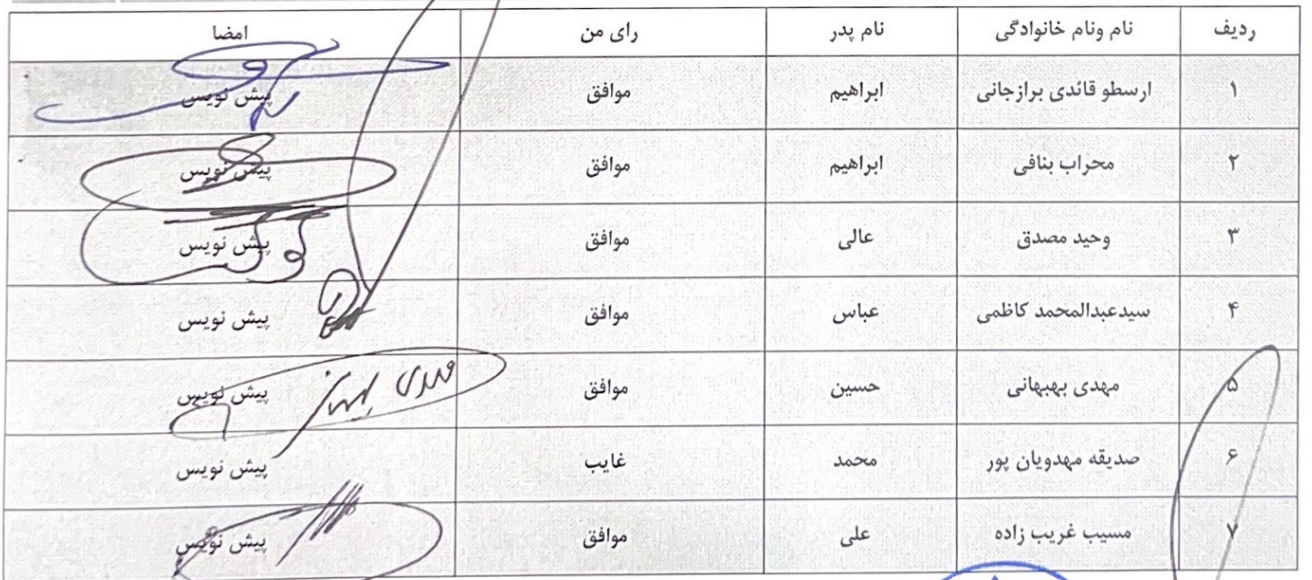 ردیف نام ونام خانوادگی نام پدر رای من امضا
۱ ارسطو قائدی برازجانی ابراهیم موافق پیش نویس
۲ محراب بنافی ابراهیم موافق پیش نویس
۳ وحید مصدق عالی موافق پیش نویس
۴ سیدعبدالمحمد کاظمی عباس موافق پیش نویس
۵ مهدی بهبهانی حسین موافق پیش نویس
۶ صدیقه مهدویان پور محمد غایب پیش نویس
۷ مسیب غریب زاده علی موافق پیش نویس